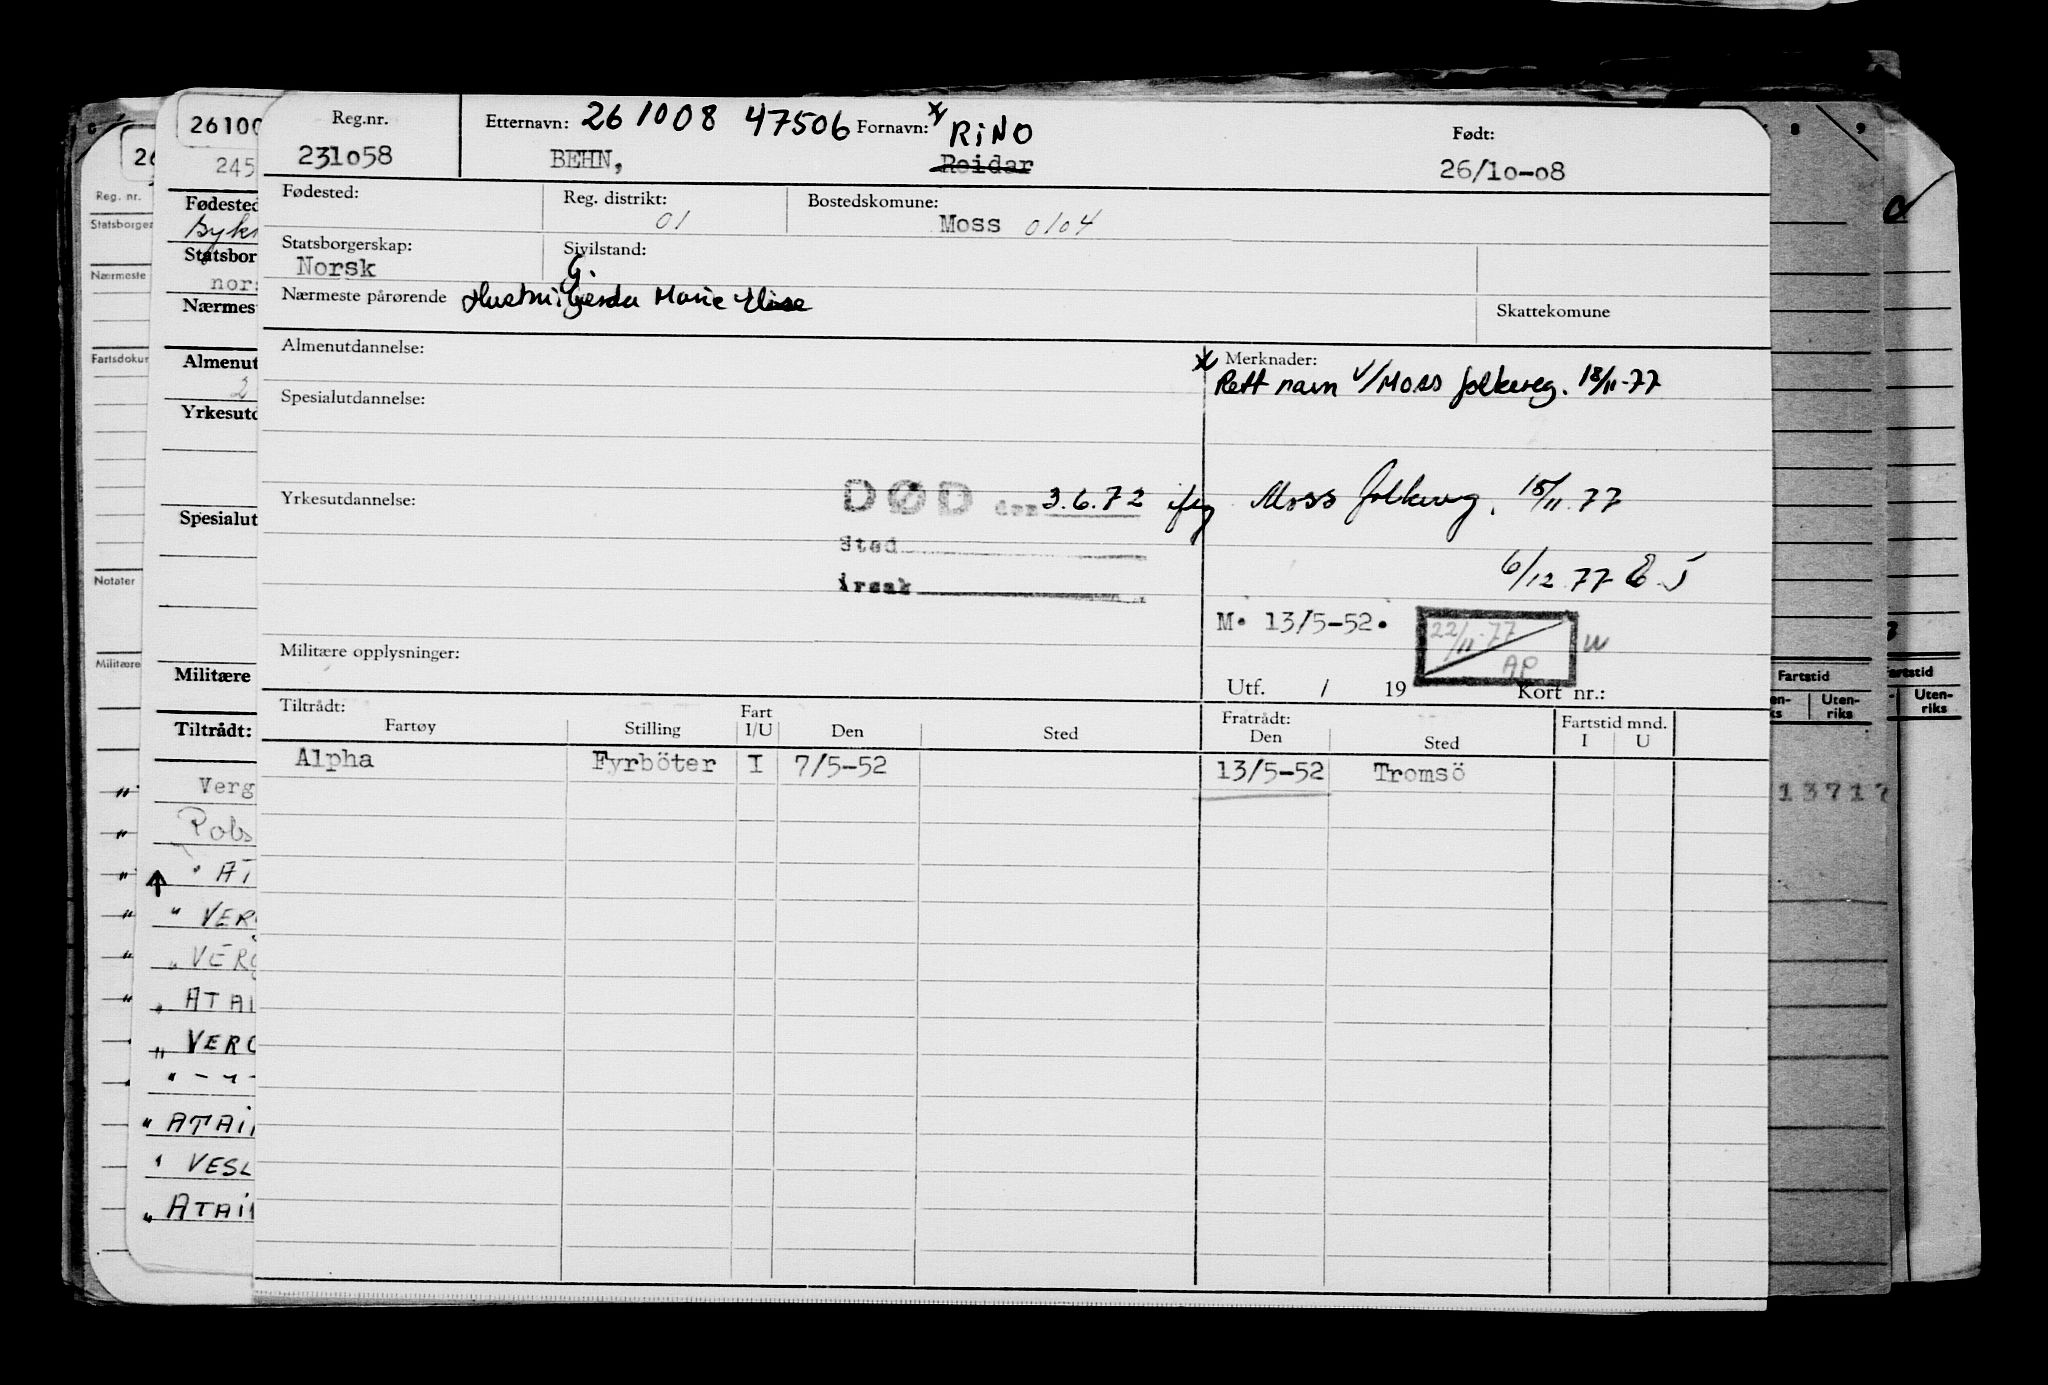 Reg.nr.
231058
Etternavn: 261008 47506 Fornavn: RiNO
BEHN, Reidar
Født:
26/10-08
Fødested:
Reg. distrikt:
01
Bostedskomune:
Moss 0104
Statsborgerskap:
Norsk
Sivilstand:
G.
Nærmeste pårørende Hustru: Gerda Marie Elise
Skattekomune
Almenutdannelse:
Merknader:
Rett navn v/Moss folkereg. 18/11-77
Spesialutdannelse:
Yrkesutdannelse:
DØD den 3.6.72 ifg Moss folkereg. 18/11.77
Sted
Årsak
6/12.77
M. 13/5-52.
22/11-77
AP
Militære opplysninger:
Utf. / 19 Kort nr.:
Tiltrådt:
Fartøy Stilling Fart I/U Den Sted
Fratrådt:
Den Sted
Fartstid mnd.
I U
Alpha Fyrböter I 7/5-52 13/5-52 Tromsö
26100
245
Fødested
Bykl
Statsbor
nors
Nærmes
Almenut
2
Yrkesutd
Spesialut
Militære
Tiltrådt:
Verg
Pobs
" AT
" VERG
" VERG
" ATAI
" VERG
" - " -
" ATAI
" VESL
" ATAI
26
Reg. nr.
Statsborger
Nærmeste
Fartsdokum
Notater
Militære
8 9
Fartstid
Uten-
riks
13717
Fartstid
Uten-
riks